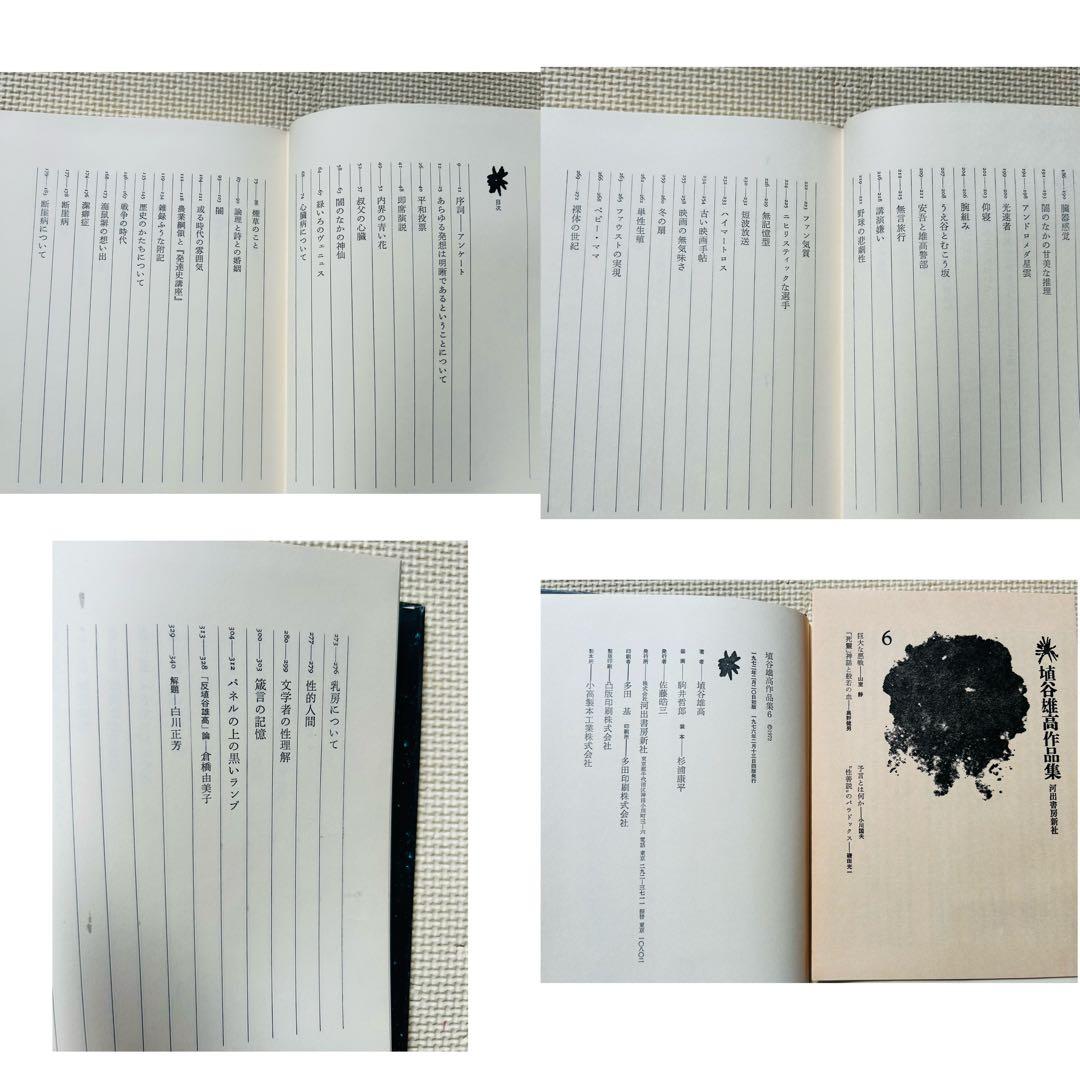 目次
9—11 序詞——アンケート
12—25 あらゆる発想は明晰であるということについて
26—40 平和投票
41—48 即席演説
49—51 内界の青い花
52—57 叔父の心臓
58—63 闇のなかの神仙
64—67 緑いろのヴィニュス
68—72 心臓病について
煙草のこと
論理と詩との婚姻
闇
或る時代の雰囲気
農業綱領と『発達史講座』
雑録ふうな附記
歴史のかたちについて
戦争の時代
海鼠漿の想い出
潔癖症
断崖病
断崖病について
臓器感覚
闇のなかの甘美な推理
アンドロメダ星雲
光速者
仰寝
腕組み
うえ谷とむこう坂
安吾と雄高警部
無言旅行
講演嫌い
野球の悲劇性
ファン気質
ニヒリスティックな選手
無記憶型
短波放送
ハイマートロス
古い映画手帖
映画の無気味さ
冬の扇
単性生殖
ファウストの実現
ベビー・ママ
裸体の世紀
273—276 乳房について
277—279 性的人間
280—299 文学者の性理解
300—303 箴言の記憶
304—312 パネルの上の黒いランプ
313—328 「反埴谷雄高」論——倉橋由美子
329—340 解題——白川正芳
埴谷雄高作品集6 ©1972
一九七二年二月二〇日初版 一九七六年二月十三日四版発行
著者——埴谷雄高
装画——駒井哲郎 装本——杉浦康平
発行者——佐藤皓三
発行所——株式会社河出書房新社 東京都千代田区神田小川町三—六 電話 東京 二九二—三七一一 振替 東京 一〇八〇二
印刷者——多田 基 印刷所——多田印刷株式会社
製版印刷——凸版印刷株式会社
製本所——小高製本工業株式会社
埴谷雄高作品集
河出書房新社
6
巨大な悪戦——山室 静
『死靈』神話と般若の血——眞野健男
予言とは何か——小川国夫
“性善説”のパラドックス——磯田光一